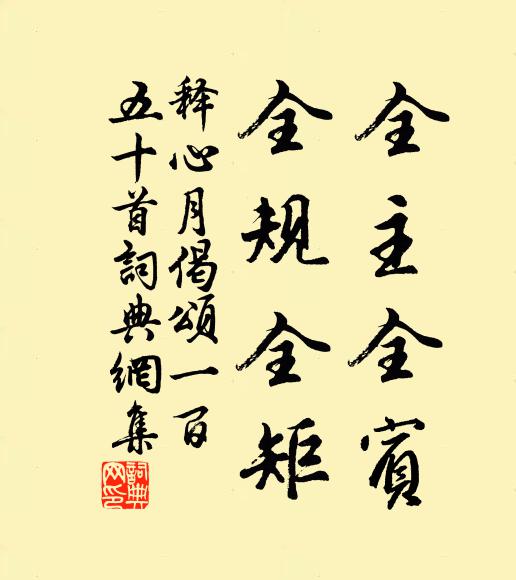 全主全賓
全規全矩
释心月偈頌一百
五十首詞典網集
詞典
网印